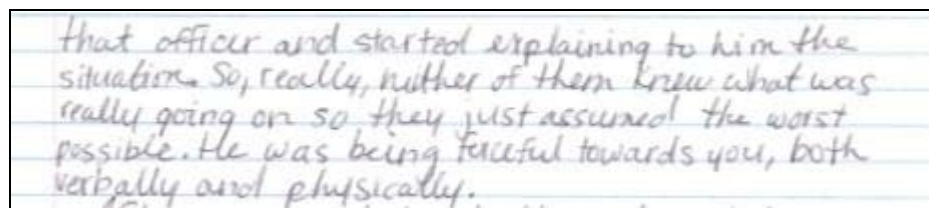 that officer and started explaining to him the
situation. So, really, neither of them knew what was
really going on so they just assumed the worst
possible. He was being forceful towards you, both
verbally and physically.